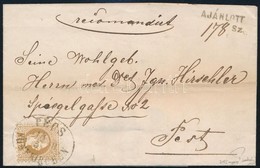 recomandirt
AJÁNLOTT
178. SZ.
Seine Wohlgeb.
Herrn Ignz. Hirschler
Spiegelgasse No 2
Pest
PÉCS